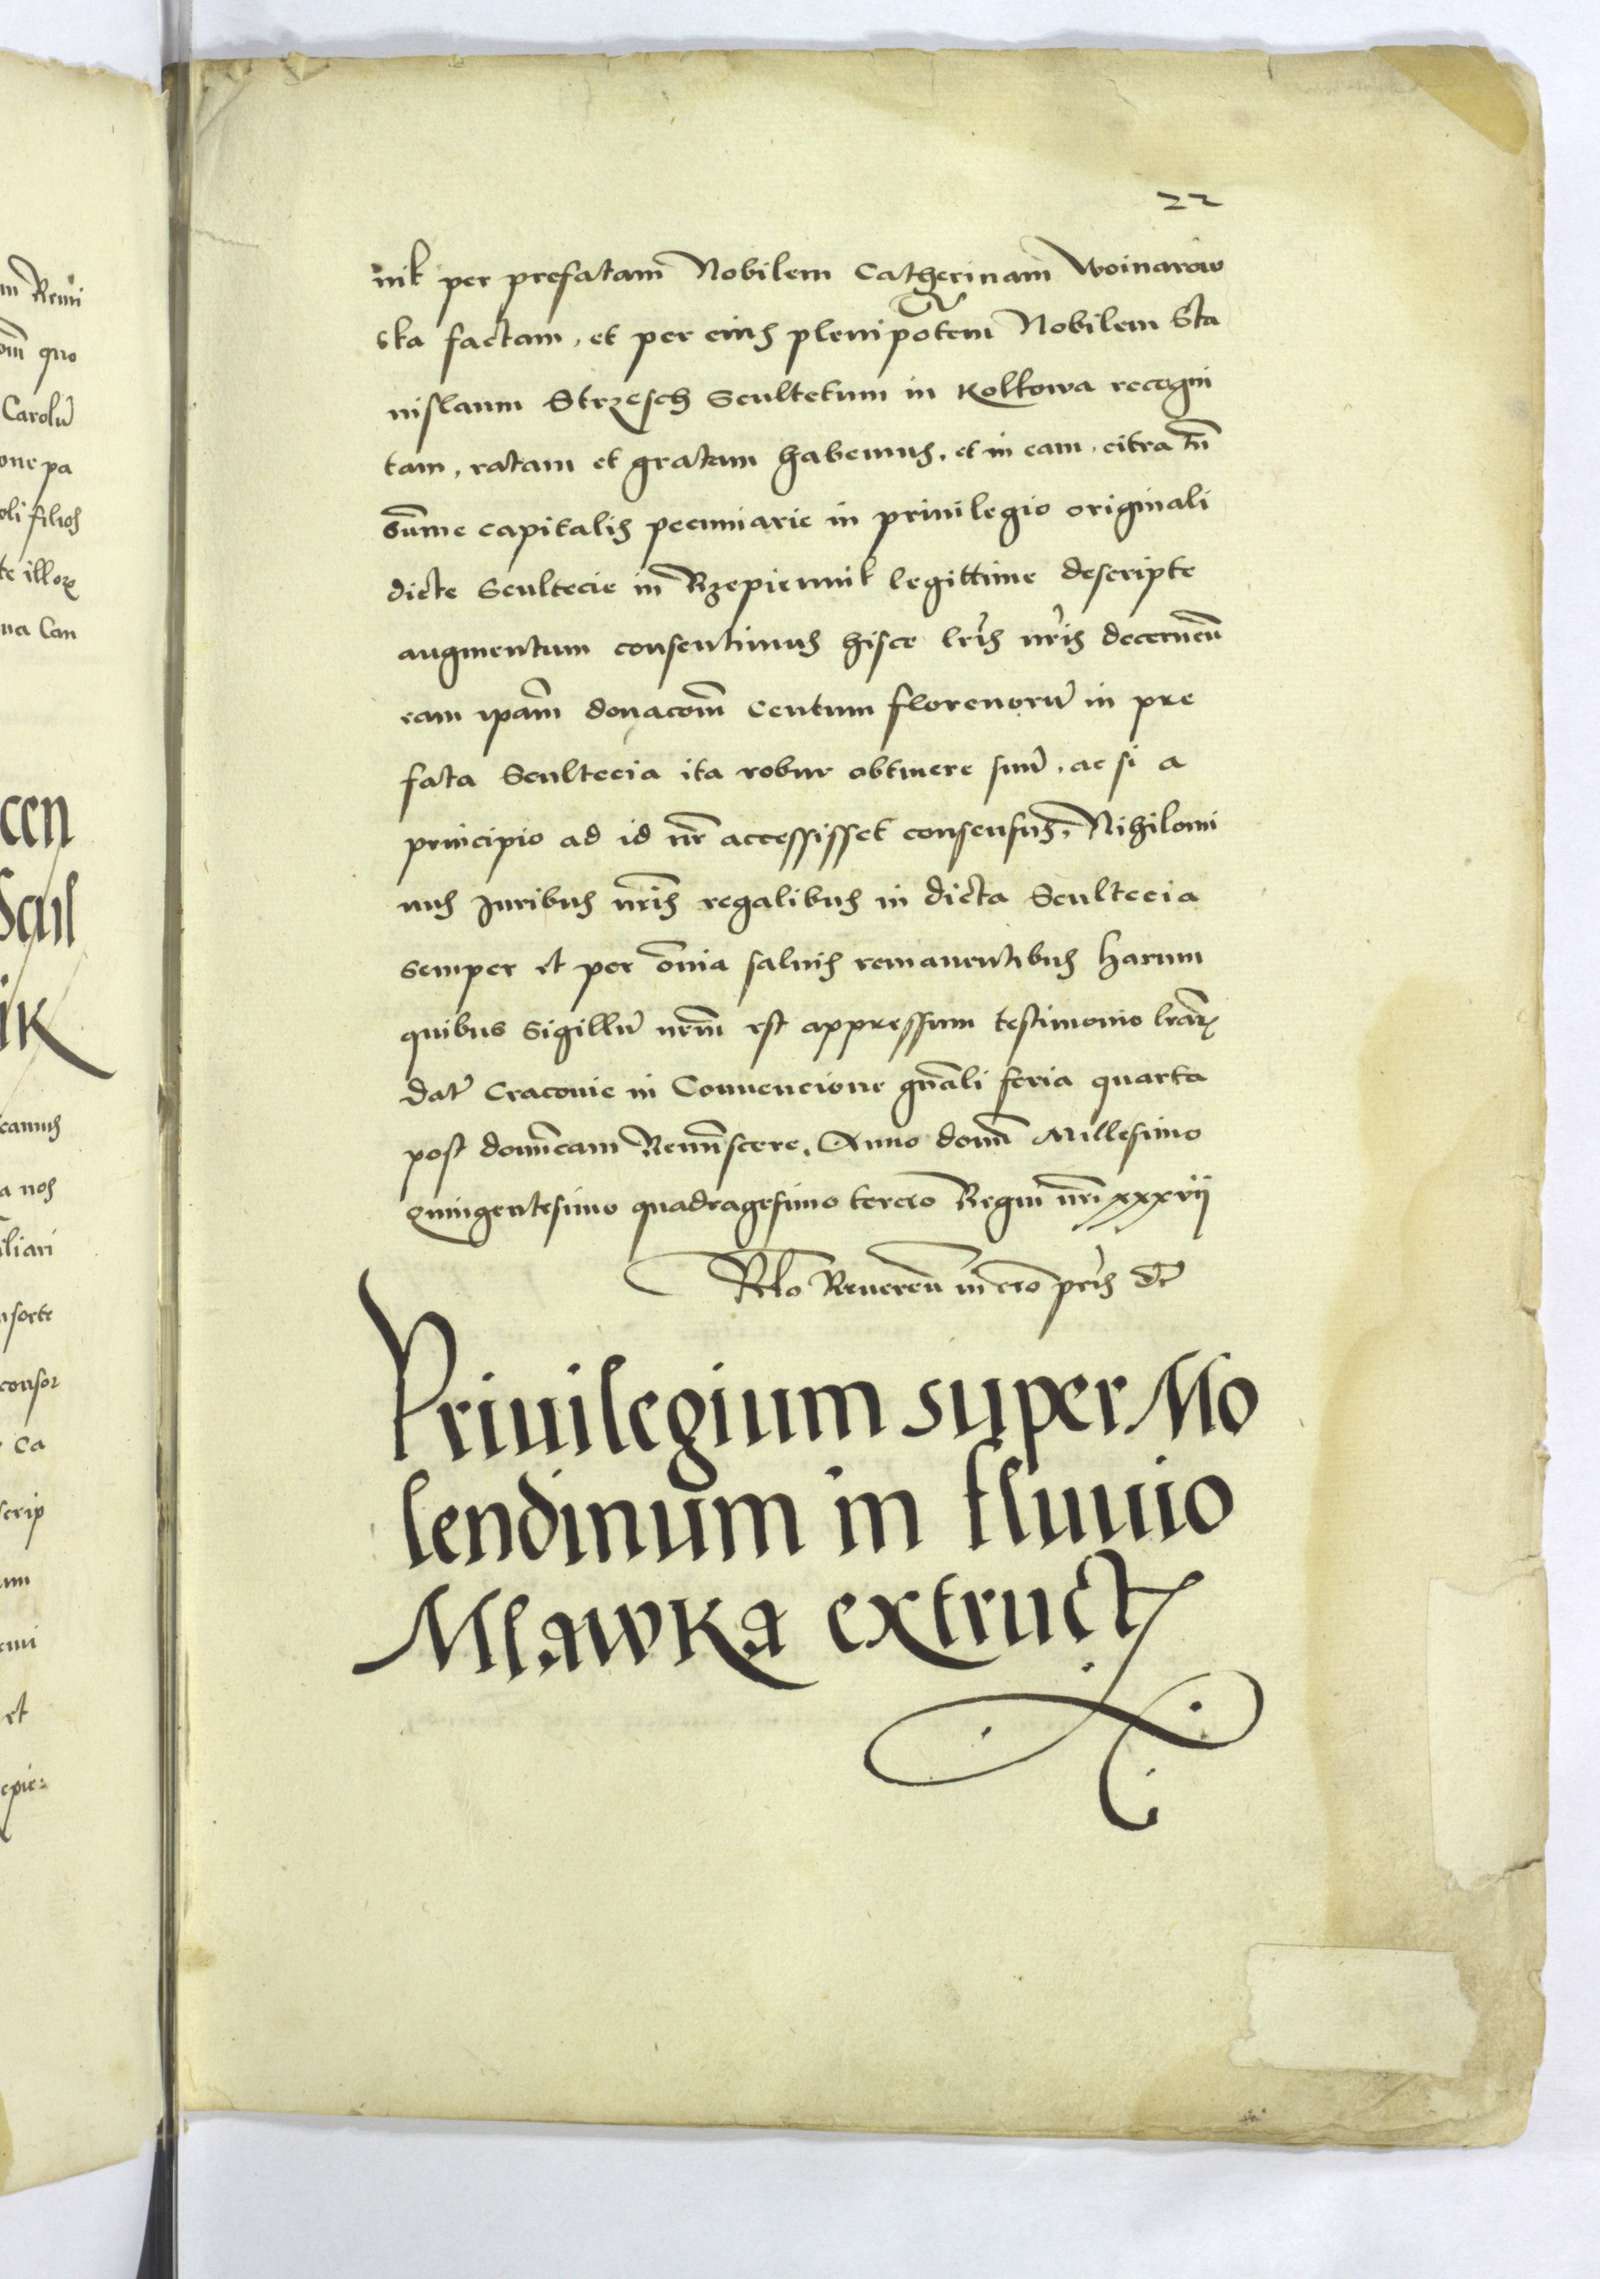 22
nik per prefatam Nobilem Catherinam Woinarow
ska factam, et per eius plenipotem Nobilem Sta
nislaum Strzesch Scultetum in Kolkowa recogni
tam, ratam et gratam habemus, et in eam, citra tn̄
sum̄e capitalis pecuniarie in priuilegio originali
dicte Scultecie in Rzepiennik legittime descripte
augmentum consentimus hisce lr̄is nr̄is decernen̄
eam ipam̄ donacom̄ Centum florenorū in pre
fata Scultecia ita robur obtinere suū, ac si a
principio ad id nr̄ accessisset consensus, Nihilomi
nus Juribus nr̄is regalibus in dicta Scultecia
semper et per om̄ia saluis remanentibus Harum
quibus Sigillū nr̄m est appressum testimonio lr̄aꝝ
dat̄ Cracouie in Conuencione gn̄ali feria quarta
post domīcam Remīscere, Anno domī Millesimo
Quingentesimo quadragesimo tercio Regni nr̄i xxxvij
Rlo Reueren̄ in cro pr̄is
Priuilegium super Mo
lendinum in fluuio
Mlawka extruct
Remi
quo
Carolū
one pa
oli filios
te illoꝝ
cen
Scul
ik
camus
a nos
iliari
nsorte
consor
Ca
scrip
et
epie